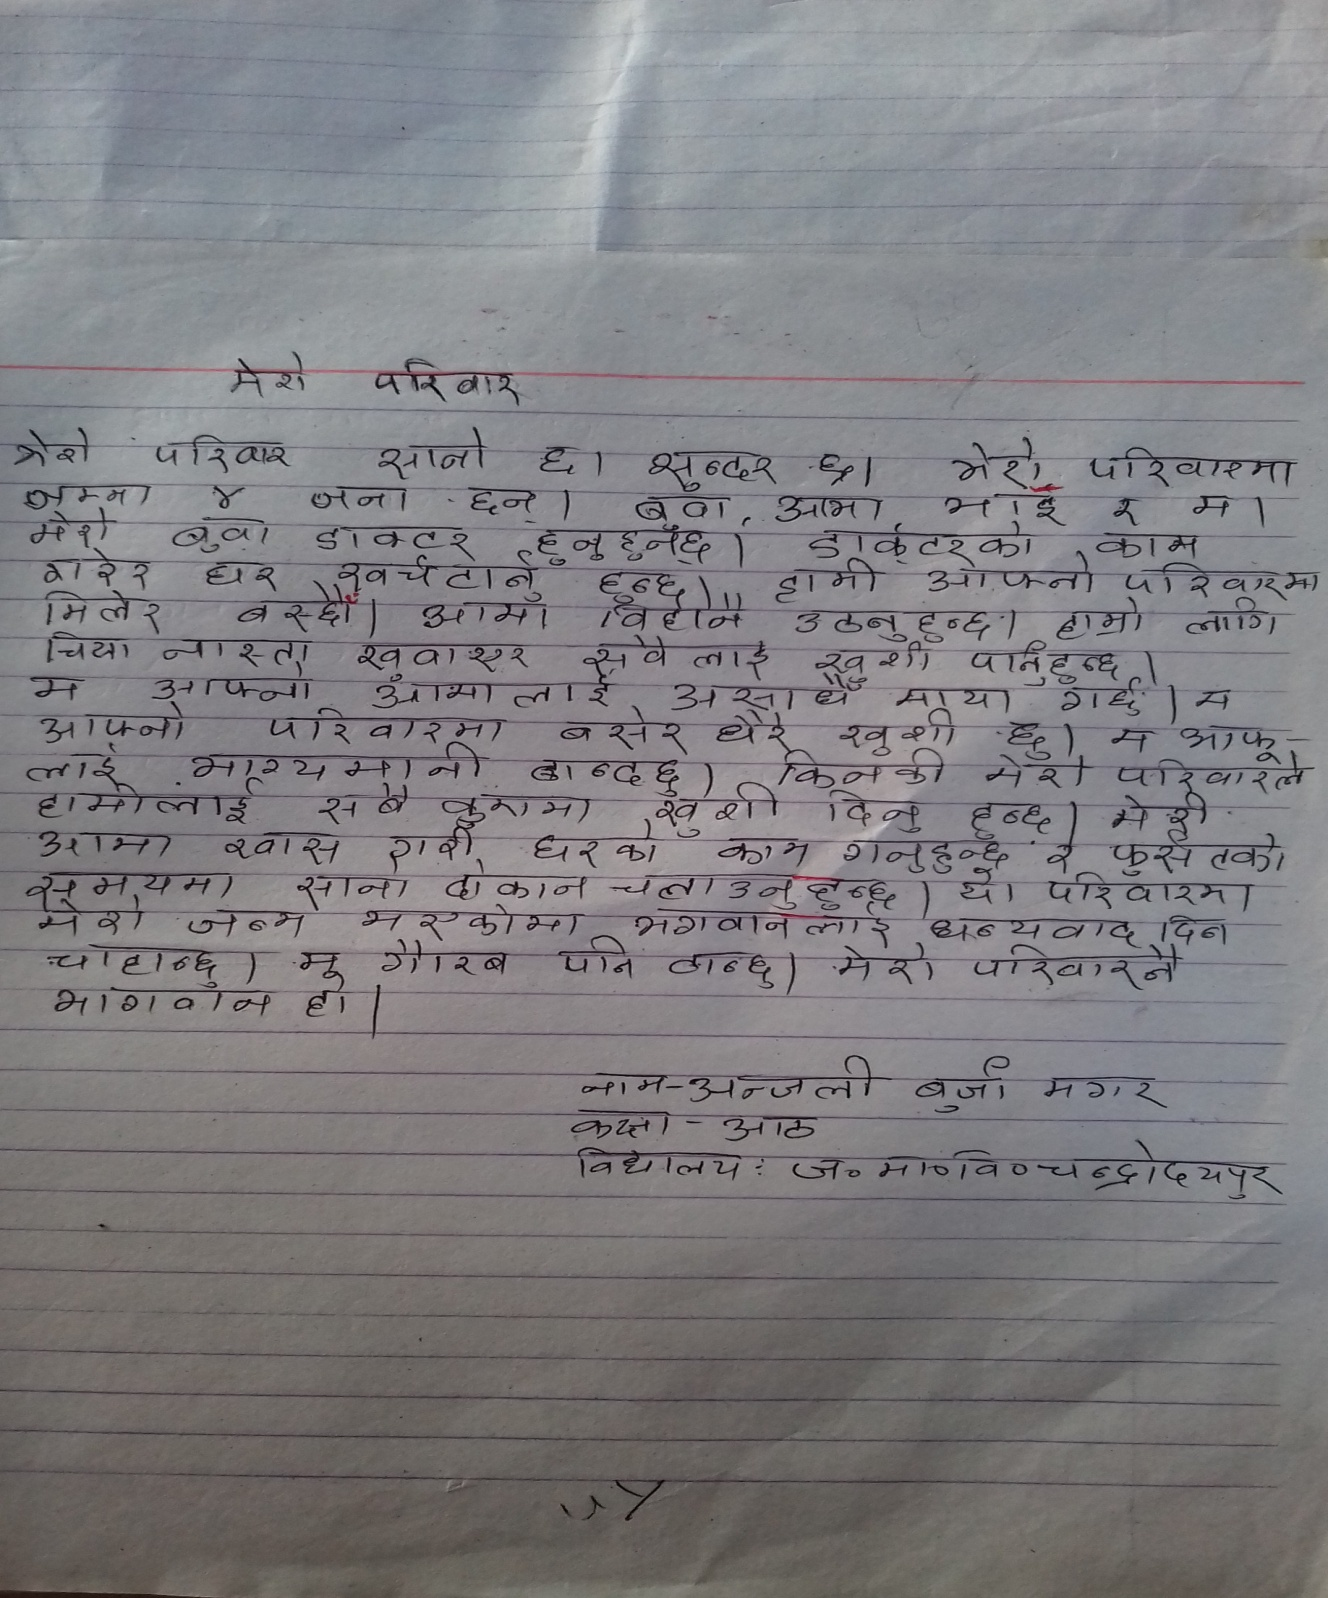 मेरो परिवार
मेरो परिवार सानो छ। सुन्दर छ। मेरो परिवारमा
जम्मा ४ जना छन्। बुवा, आमा भाई र म।
मेरो बुवा डाक्टर हुनुहुन्छ। डाक्टरको काम
गरेर घर खर्चटार्नु हुन्छ। हामी आफ्नो परिवारमा
मिलेर बस्छौं। आमा विहानै उठनुहुन्छ। हाम्रो लागि
चिया नास्ता खुवाएर सवै लाई खुशी पार्नुहुन्छ।
म आफ्नो आमालाई असाधै माया गर्छु। म
आफ्नो परिवारमा बसेर धेरै खुशी छु। म आफू-
लाई भाग्यमानी ठान्दछु। किनकी मेरो परिवारले
हामीलाई सबै कुरामा खुशी दिनु हुन्छ। मेरी
आमा खास गरी घरको काम गनुहुन्छ र फुर्सतको
समयमा सानो दोकान चलाउनुहुन्छ। यो परिवारमा
मेरो जन्म भएकोमा भगवानलाई धन्यवाद दिन
चाहान्छु। म गौरब पनि ठान्छु। मेरो परिवारनै
भागवान हो।
नाम-अन्जली बुर्जा मगर
कक्षा - आठ
विद्यालय: ज० मा०वि०चन्द्रोदयपुर